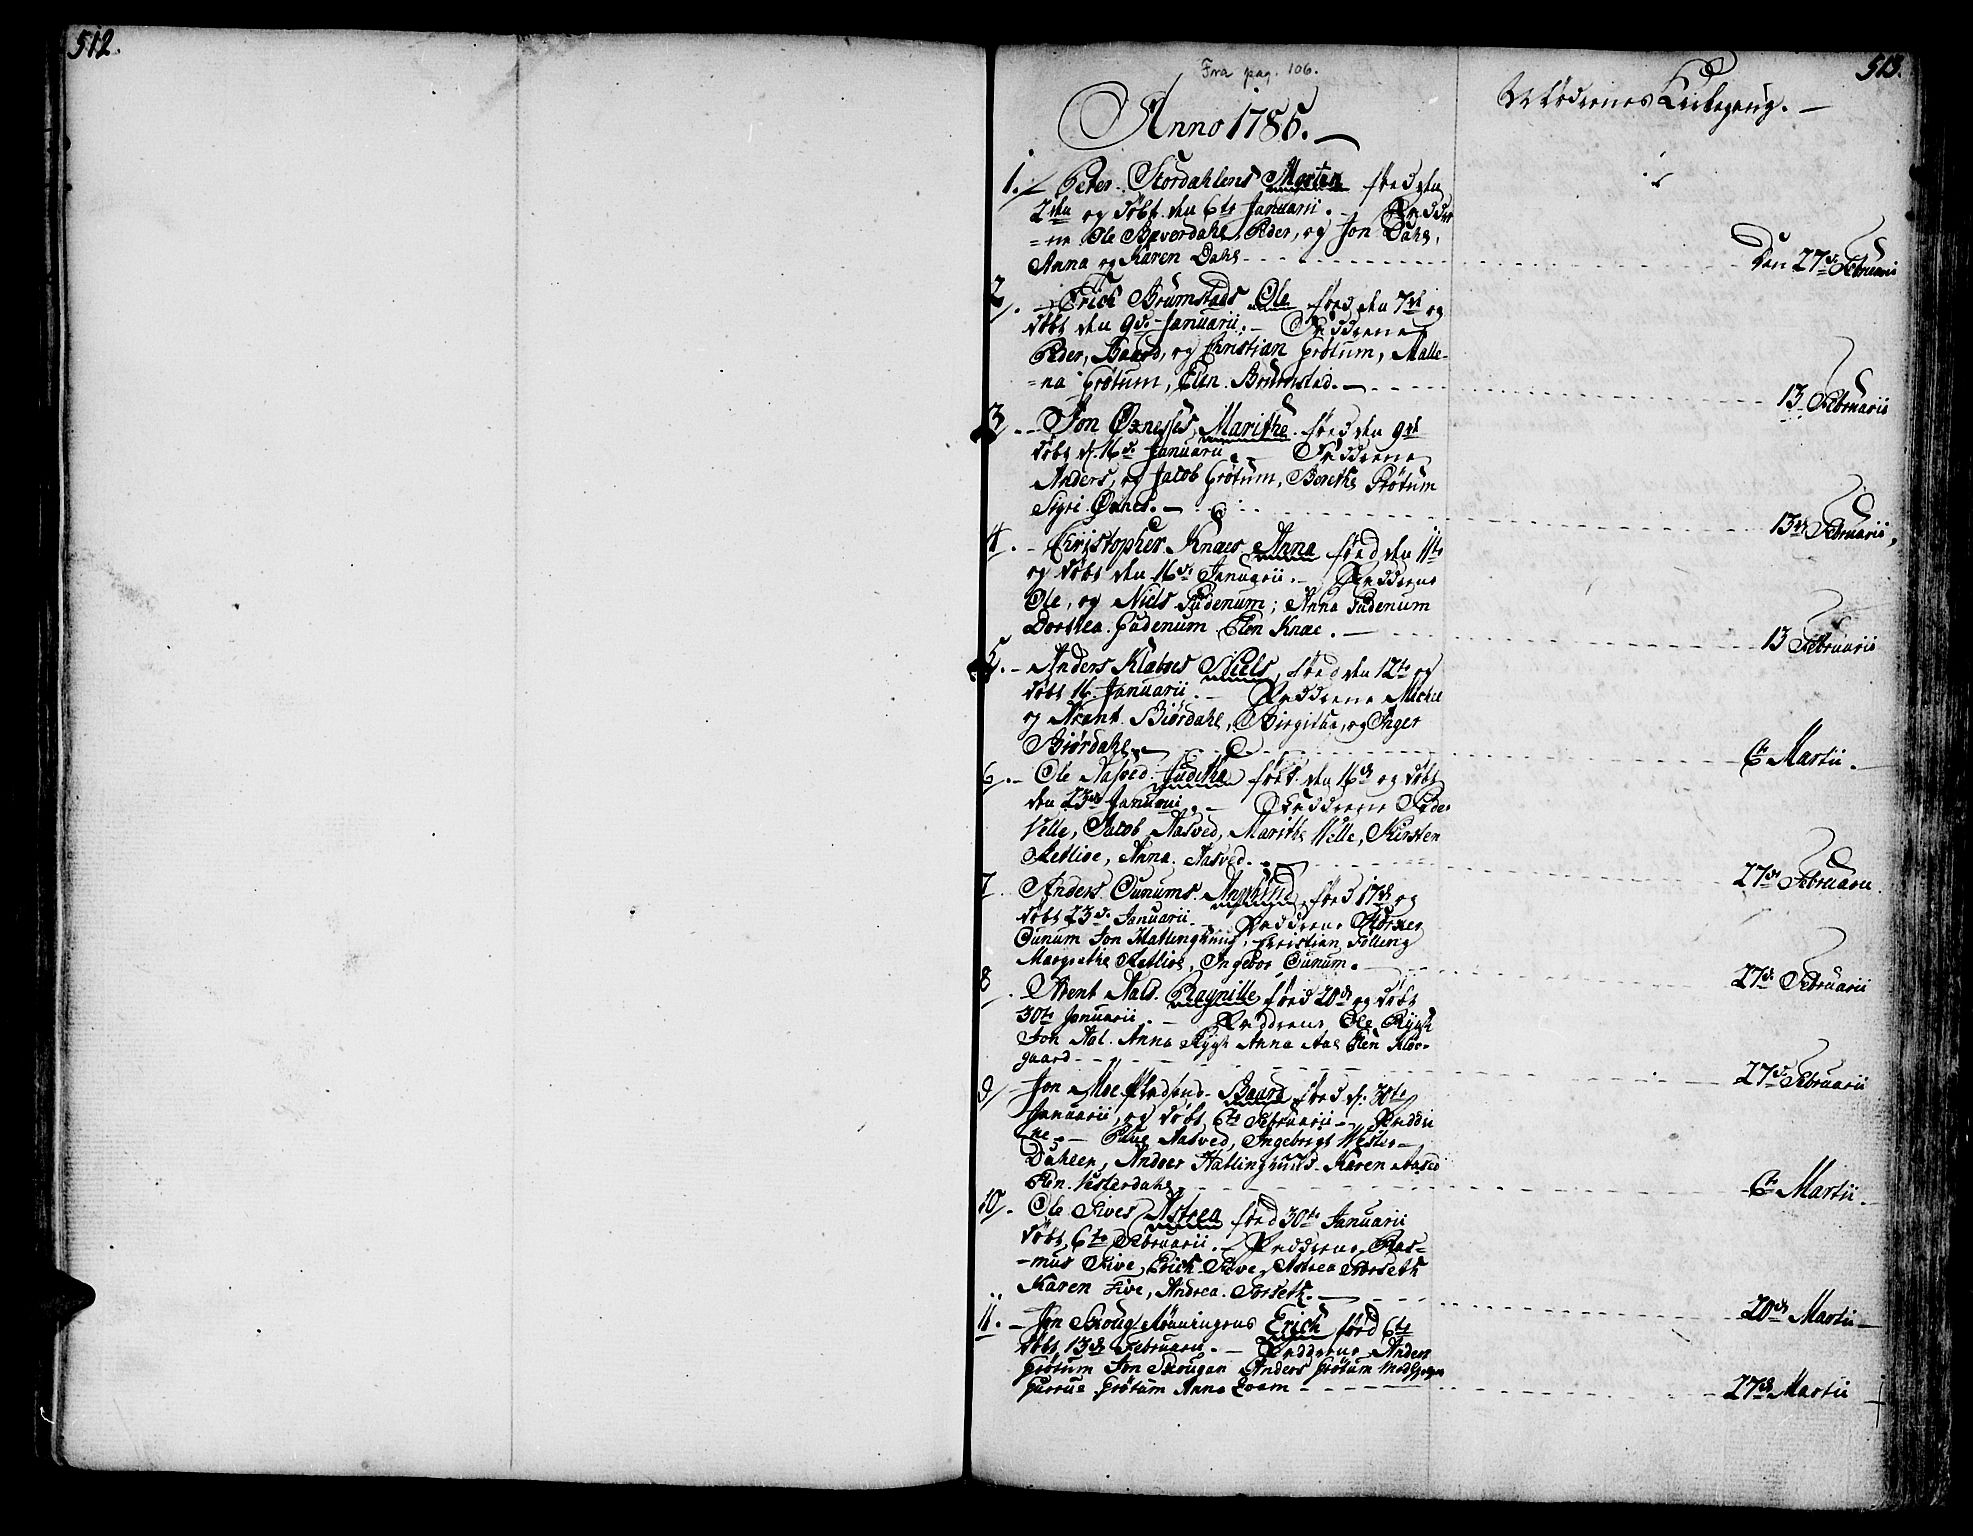 512.
Fra pag. 106.
513.
Anno 1785.
Mødrenes Kirkegang.
1. Peder Stordahlens Morten fød den
2den og døbt den 6te Januarii. Fadder
=ne Ole Bæverdahl, Peder, og Jon Dahl,
Anna og Karen Dahl
Den 27de Februarii
2. Erich Brumstads Ole fød den 7de og
døbt den 9de Januarii. Fadderne
Peder, Baard, og Christian Grøtum, Malle-
=na Grøtum, Elen Brumstad.
13 Februarii
3. Jon Øxnesses Marithe fød den 9de
døbt d. 16de Januarii. Fadderne
Anders, og Jacob Grøtum, Berethe Grøtum
Sigri Øxnes.
13de Februarii
4. Christopher Knaes Anna fød den 11te
og døbt den 16de Januarii. Fadderne
Ole, og Niels Gudenum; Anna Gudenum
Dorthea Gudenum Elen Knae.
13 Februarii
5. Anders Niels, fød den 12te og
døbt 16 Januarii. Fadderne Michel
og Biørdahl, Birgitha, og Inger
Biørdahl
6te Martii.
6. Ole Aasved Juditha fød den 16de og døbt
den 23de Januarii. Fadderne Peder
Velle, Jacob Aasved, Marithe Velle, Kirsten
Anna Aasved.
27de Februarii
7. Anders Cunums fød 17de og
døbt 23de Januarii. Fadderne
Cunum Jon Hatlinghuus, Christian Følling
Margrethe Ingebor Cunum.
27de Februarii
8. Arent Aals Ragnille fød 20de og døbt
30te Januarii. Fadderne Ole Rygh
Jon Aal Anna Rygh Anna Aal Elen
gaard
27de Februarii
9. Jon Moe Baard fød d. 30te
Januarii, og døbt 6te Februarii Fadder
ne Aasved, Ingebrigt Wester-
Dahlen, Anders Hatlinghuus Karen Aasved
Elen Vesterdahl
6te Martii.
10. Ole Fives Astrea fød 30te Januarii
døbt 6te Februarii. Fadderne Ras=
=mus Five, Erich Five, Astrea Forseth
Karen Five, Andrea Forseth.
20de Martii
11. Jon Skoug Erich fød 6te
døbt 13de Februarii. Fadderne Anders
Grøtum Jon Skougan Anders Grøtum
Gurrue Grøtum Anna
27de Martii